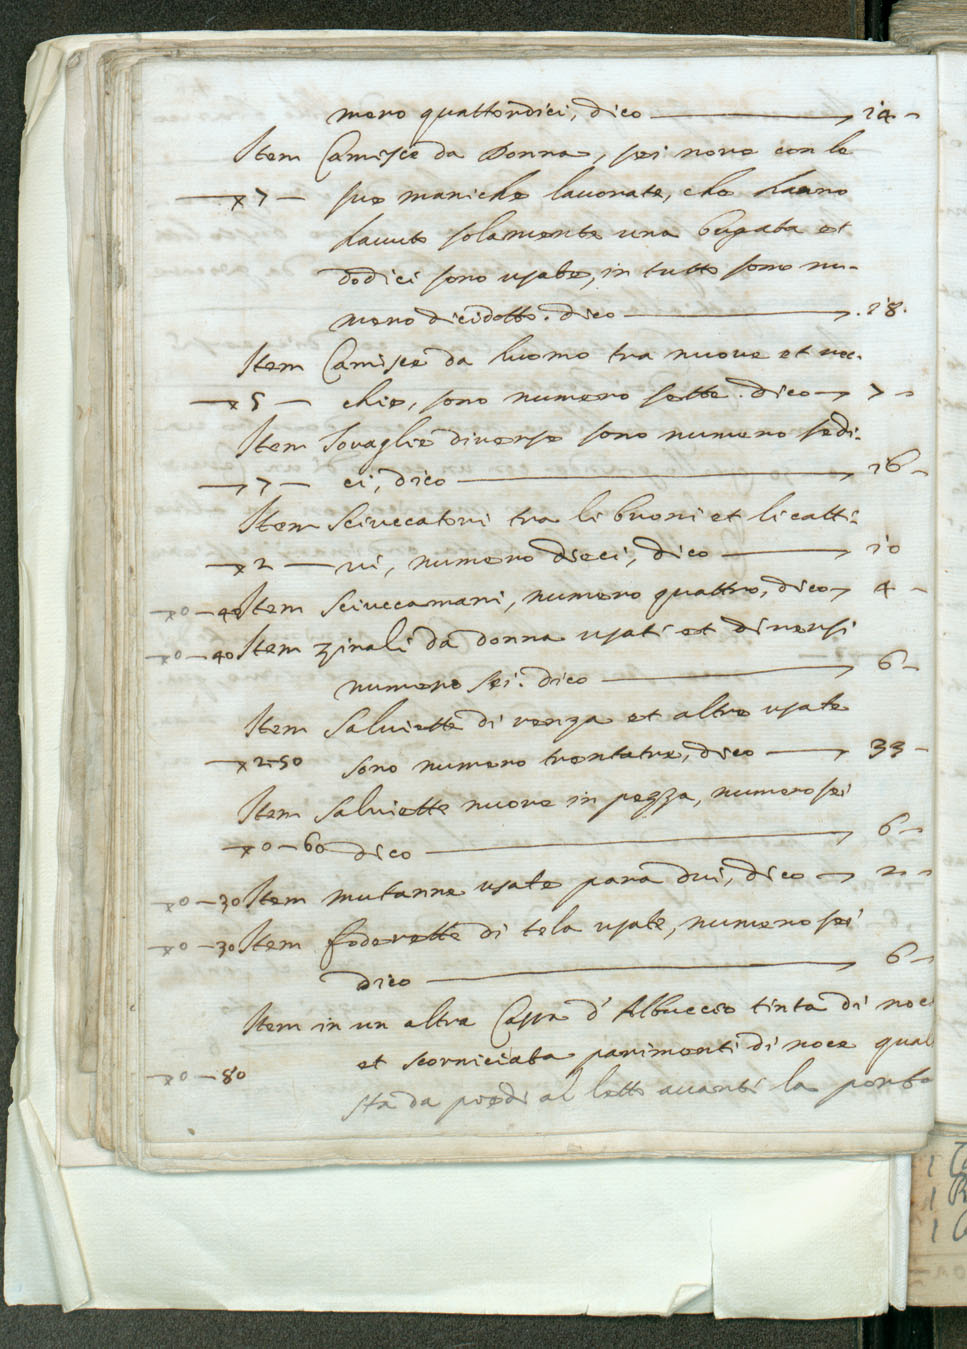 mero quattordici, dico 14
Item Camisce da Donna, sei nove con le
7 sue maniche lavorate, che hanno
havuto solamente una bugata et
dodici sono usate, in tutto sono nu-
mero dicidotto. dico 18.
Item Camisce da huomo tra nuove et vec-
5 chie, sono numero sette. dico 7
Item Tovaglie diverse sono numero sedi-
7 ci, dico 16
Item Sciuccatori tra li buoni et li catti-
2 vi, numero dieci, dico 10
0-40 Item Sciuccamani, numero quattro, dico 4
0-40 Item zinali da donna usati et diversi
numero sei. dico 6
Item Salviette di renza et altre usate
2-50 sono numero trentatre, dico 33
Item Salviette nuove in pezza, numero sei
0-60 dico 6
0-30 Item mutanne usate para dui, dico 2
0-30 Item foderette di tela usate, numero sei
dico 6
Item in un altra Cassa d'Albuccio tinta di noce
et scorniciata parimenti di noce qual
0-80
sta da piedi al letto avanti la porta